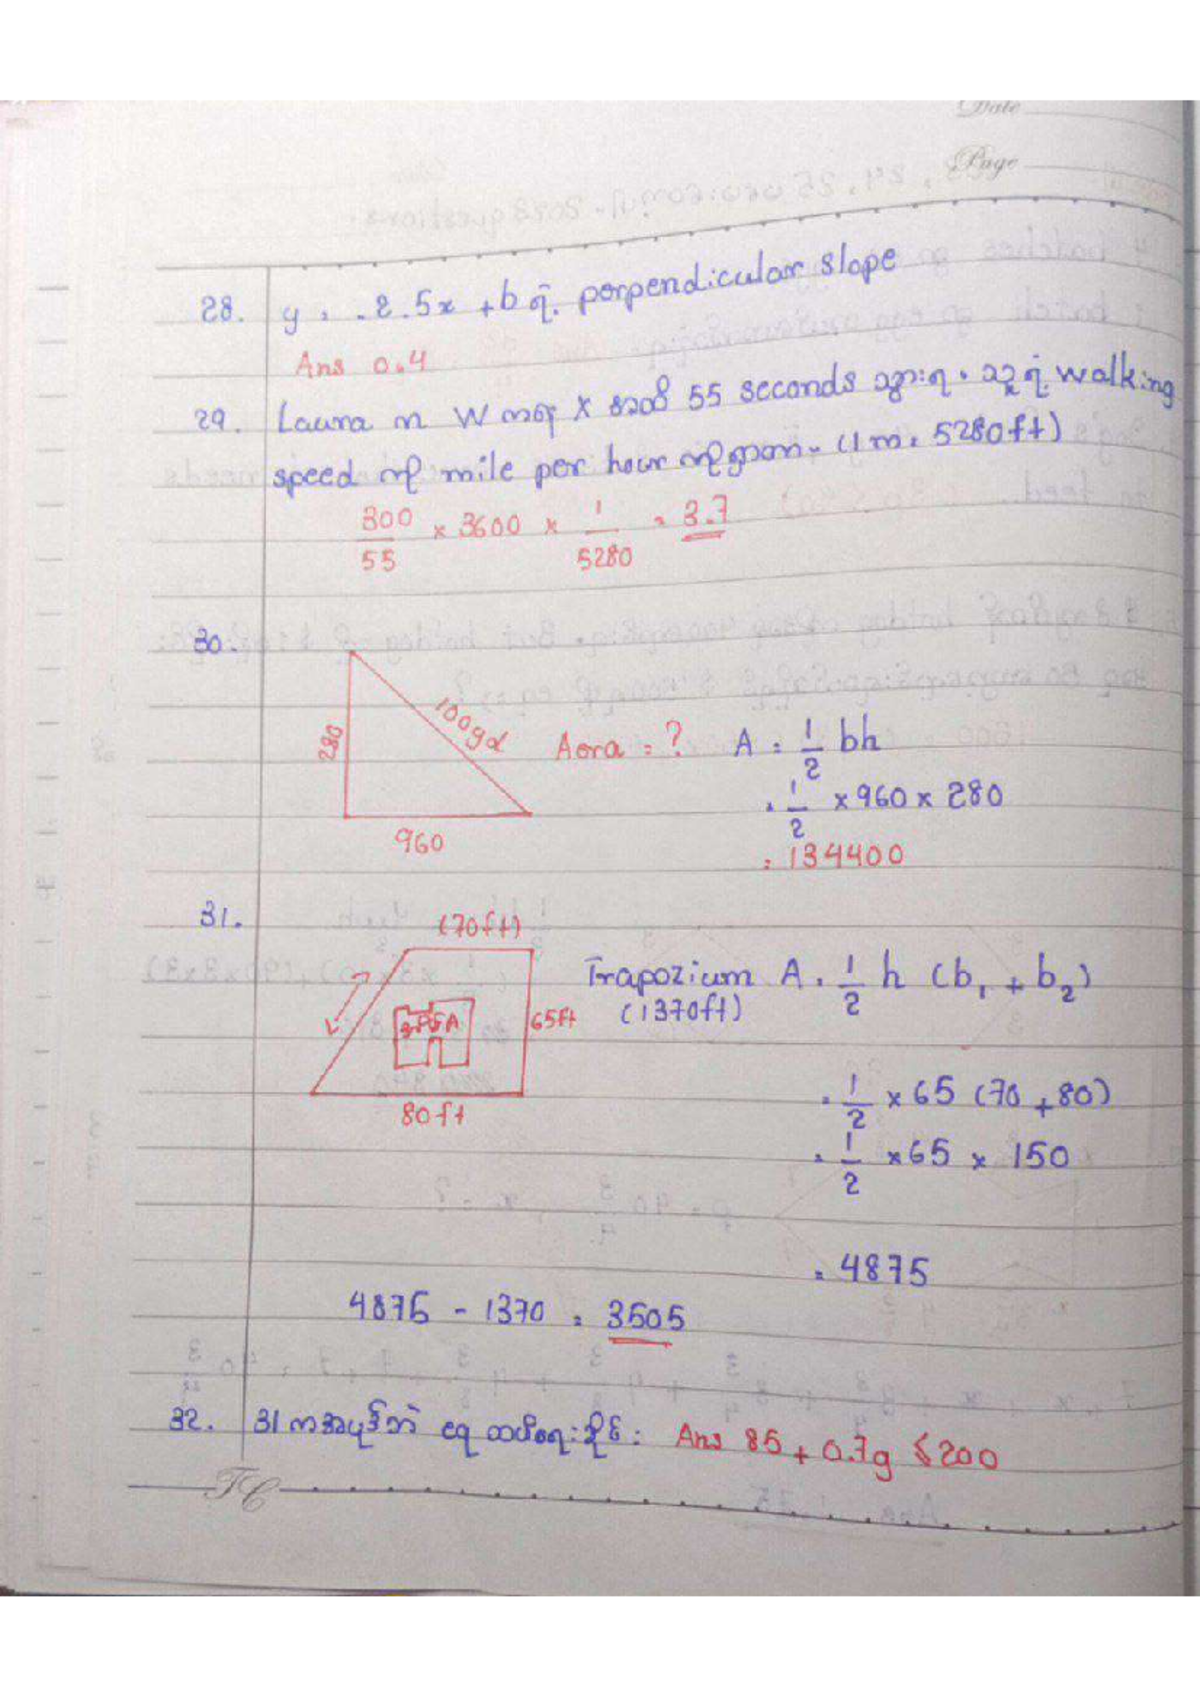 Date
Page
28. y = -2.5x + b ၏ perpendicular slope
Ans 0.4
29. Laura က W ကနေ X အထိ 55 seconds သွားရ။ သူ၏ walking
speed ကို mile per hour ကိုရှာက။ (1 m = 5280ft)
300/55 × 3600 × 1/5280 = 3.7
30.
280
100yd
960
Aera = ?
A = 1/2 bh
= 1/2 × 960 × 280
= 134400
31.
(70ft)
65ft
80ft
Trapozium A = 1/2 h (b₁ + b₂)
(1370ft)
= 1/2 × 65 (70 + 80)
= 1/2 × 65 × 150
= 4875
4875 - 1370 = 3505
32. 31 ကအပုဒ် Ans 85 + 0.7g ≤ 200
TC